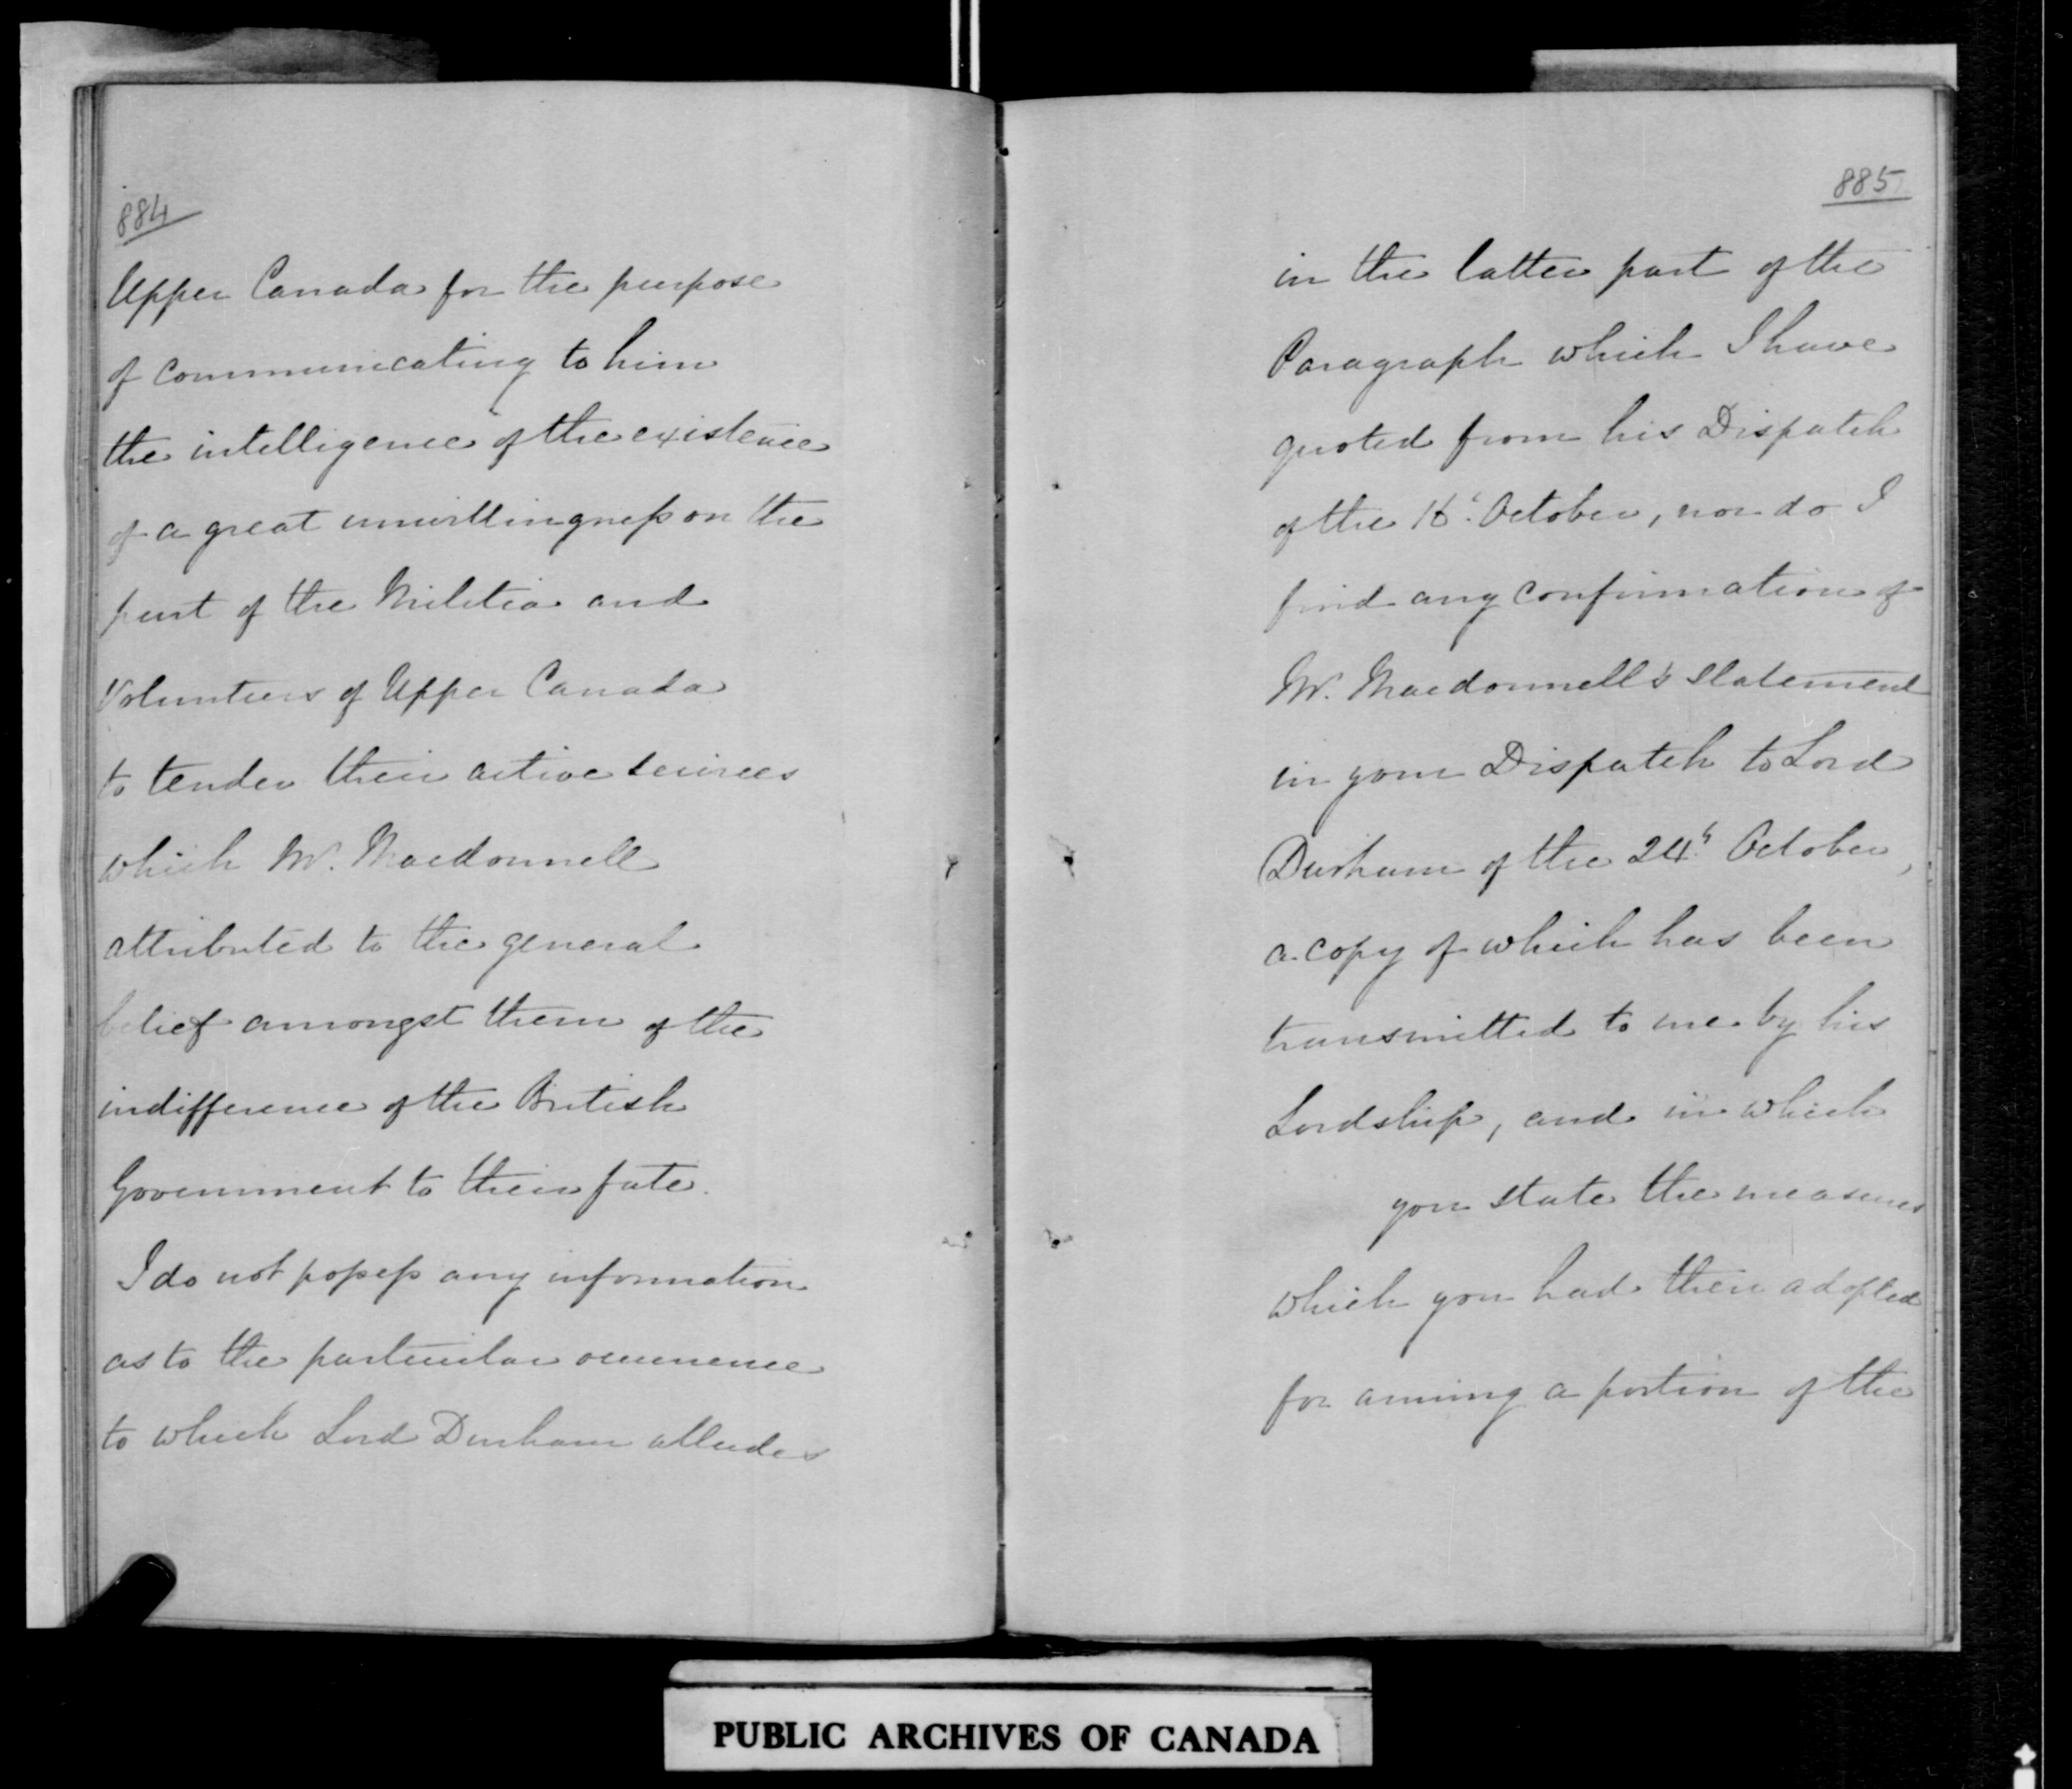 884
Upper Canada for the purpose
of communicating to him
the intelligence of the existence
of a great unwillingness on the
part of the Militia and
Volunteers of Upper Canada
to tender their active services
which Mr. Macdonnell
attributed to the general
belief amongst them of the
indifference of the British
Government to their fate.
I do not possess any information
as to the particular occurrence
to which Lord Durham alludes
885
in the latter part of the
Paragraph which I have
quoted from his Dispatch
of the October, nor do I
find any confirmation of
Mr. Macdonnell's statement
in your Dispatch to Lord
Durham of the 24th October,
a copy of which has been
transmitted to me by his
Lordship, and in which
you state the measures
which you had then adopted
for arming a portion of the
PUBLIC ARCHIVES OF CANADA